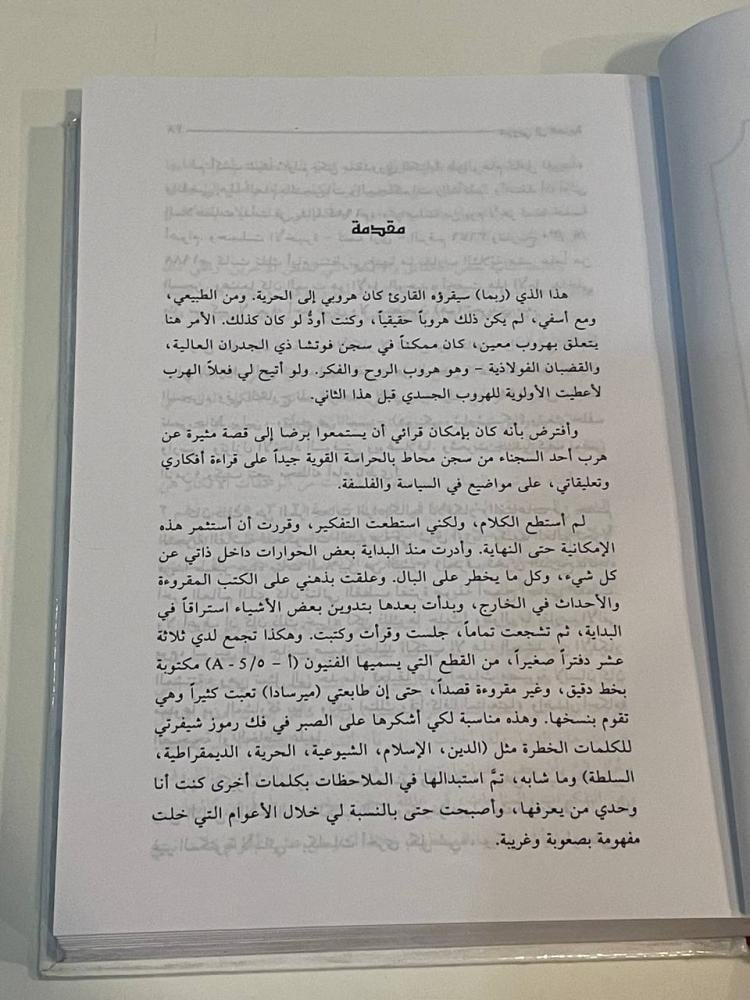 مقدمة
هذا الذي (ربما) سيقرؤه القارئ كان هروبي إلى الحرية. ومن الطبيعي،
ومع أسفي، لم يكن ذلك هروباً حقيقياً، وكنت أودُّ لو كان كذلك. الأمر هنا
يتعلق بهروب معين، كان ممكناً في سجن فوتشا ذي الجدران العالية،
والقضبان الفولاذية – وهو هروب الروح والفكر. ولو أتيح لي فعلاً الهرب
لأعطيت الأولوية للهروب الجسدي قبل هذا الثاني.
وأفترض بأنه كان بإمكان قرائي أن يستمعوا برضا إلى قصة مثيرة عن
هرب أحد السجناء من سجن محاط بالحراسة القوية جيداً على قراءة أفكاري
وتعليقاتي، على مواضيع في السياسة والفلسفة.
لم أستطع الكلام، ولكني استطعت التفكير، وقررت أن أستثمر هذه
الإمكانية حتى النهاية. وأدرت منذ البداية بعض الحوارات داخل ذاتي عن
كل شيء، وكل ما يخطر على البال. وعلقت بذهني على الكتب المقروءة
والأحداث في الخارج، وبدأت بعدها بتدوين بعض الأشياء استراقاً في
البداية، ثم تشجعت تماماً، جلست وقرأت وكتبت. وهكذا تجمع لدي ثلاثة
عشر دفتراً صغيراً، من القطع التي يسميها الفنيون (أ – ٥/A - 5) مكتوبة
بخط دقيق، وغير مقروءة قصداً، حتى إن طابعتي (ميرسادا) تعبت كثيراً وهي
تقوم بنسخها. وهذه مناسبة لكي أشكرها على الصبر في فك رموز شيفرتي
للكلمات الخطرة مثل (الدين، الإسلام، الشيوعية، الحرية، الديمقراطية،
السلطة) وما شابه، تمَّ استبدالها في الملاحظات بكلمات أخرى كنت أنا
وحدي من يعرفها، وأصبحت حتى بالنسبة لي خلال الأعوام التي خلت
مفهومة بصعوبة وغريبة.